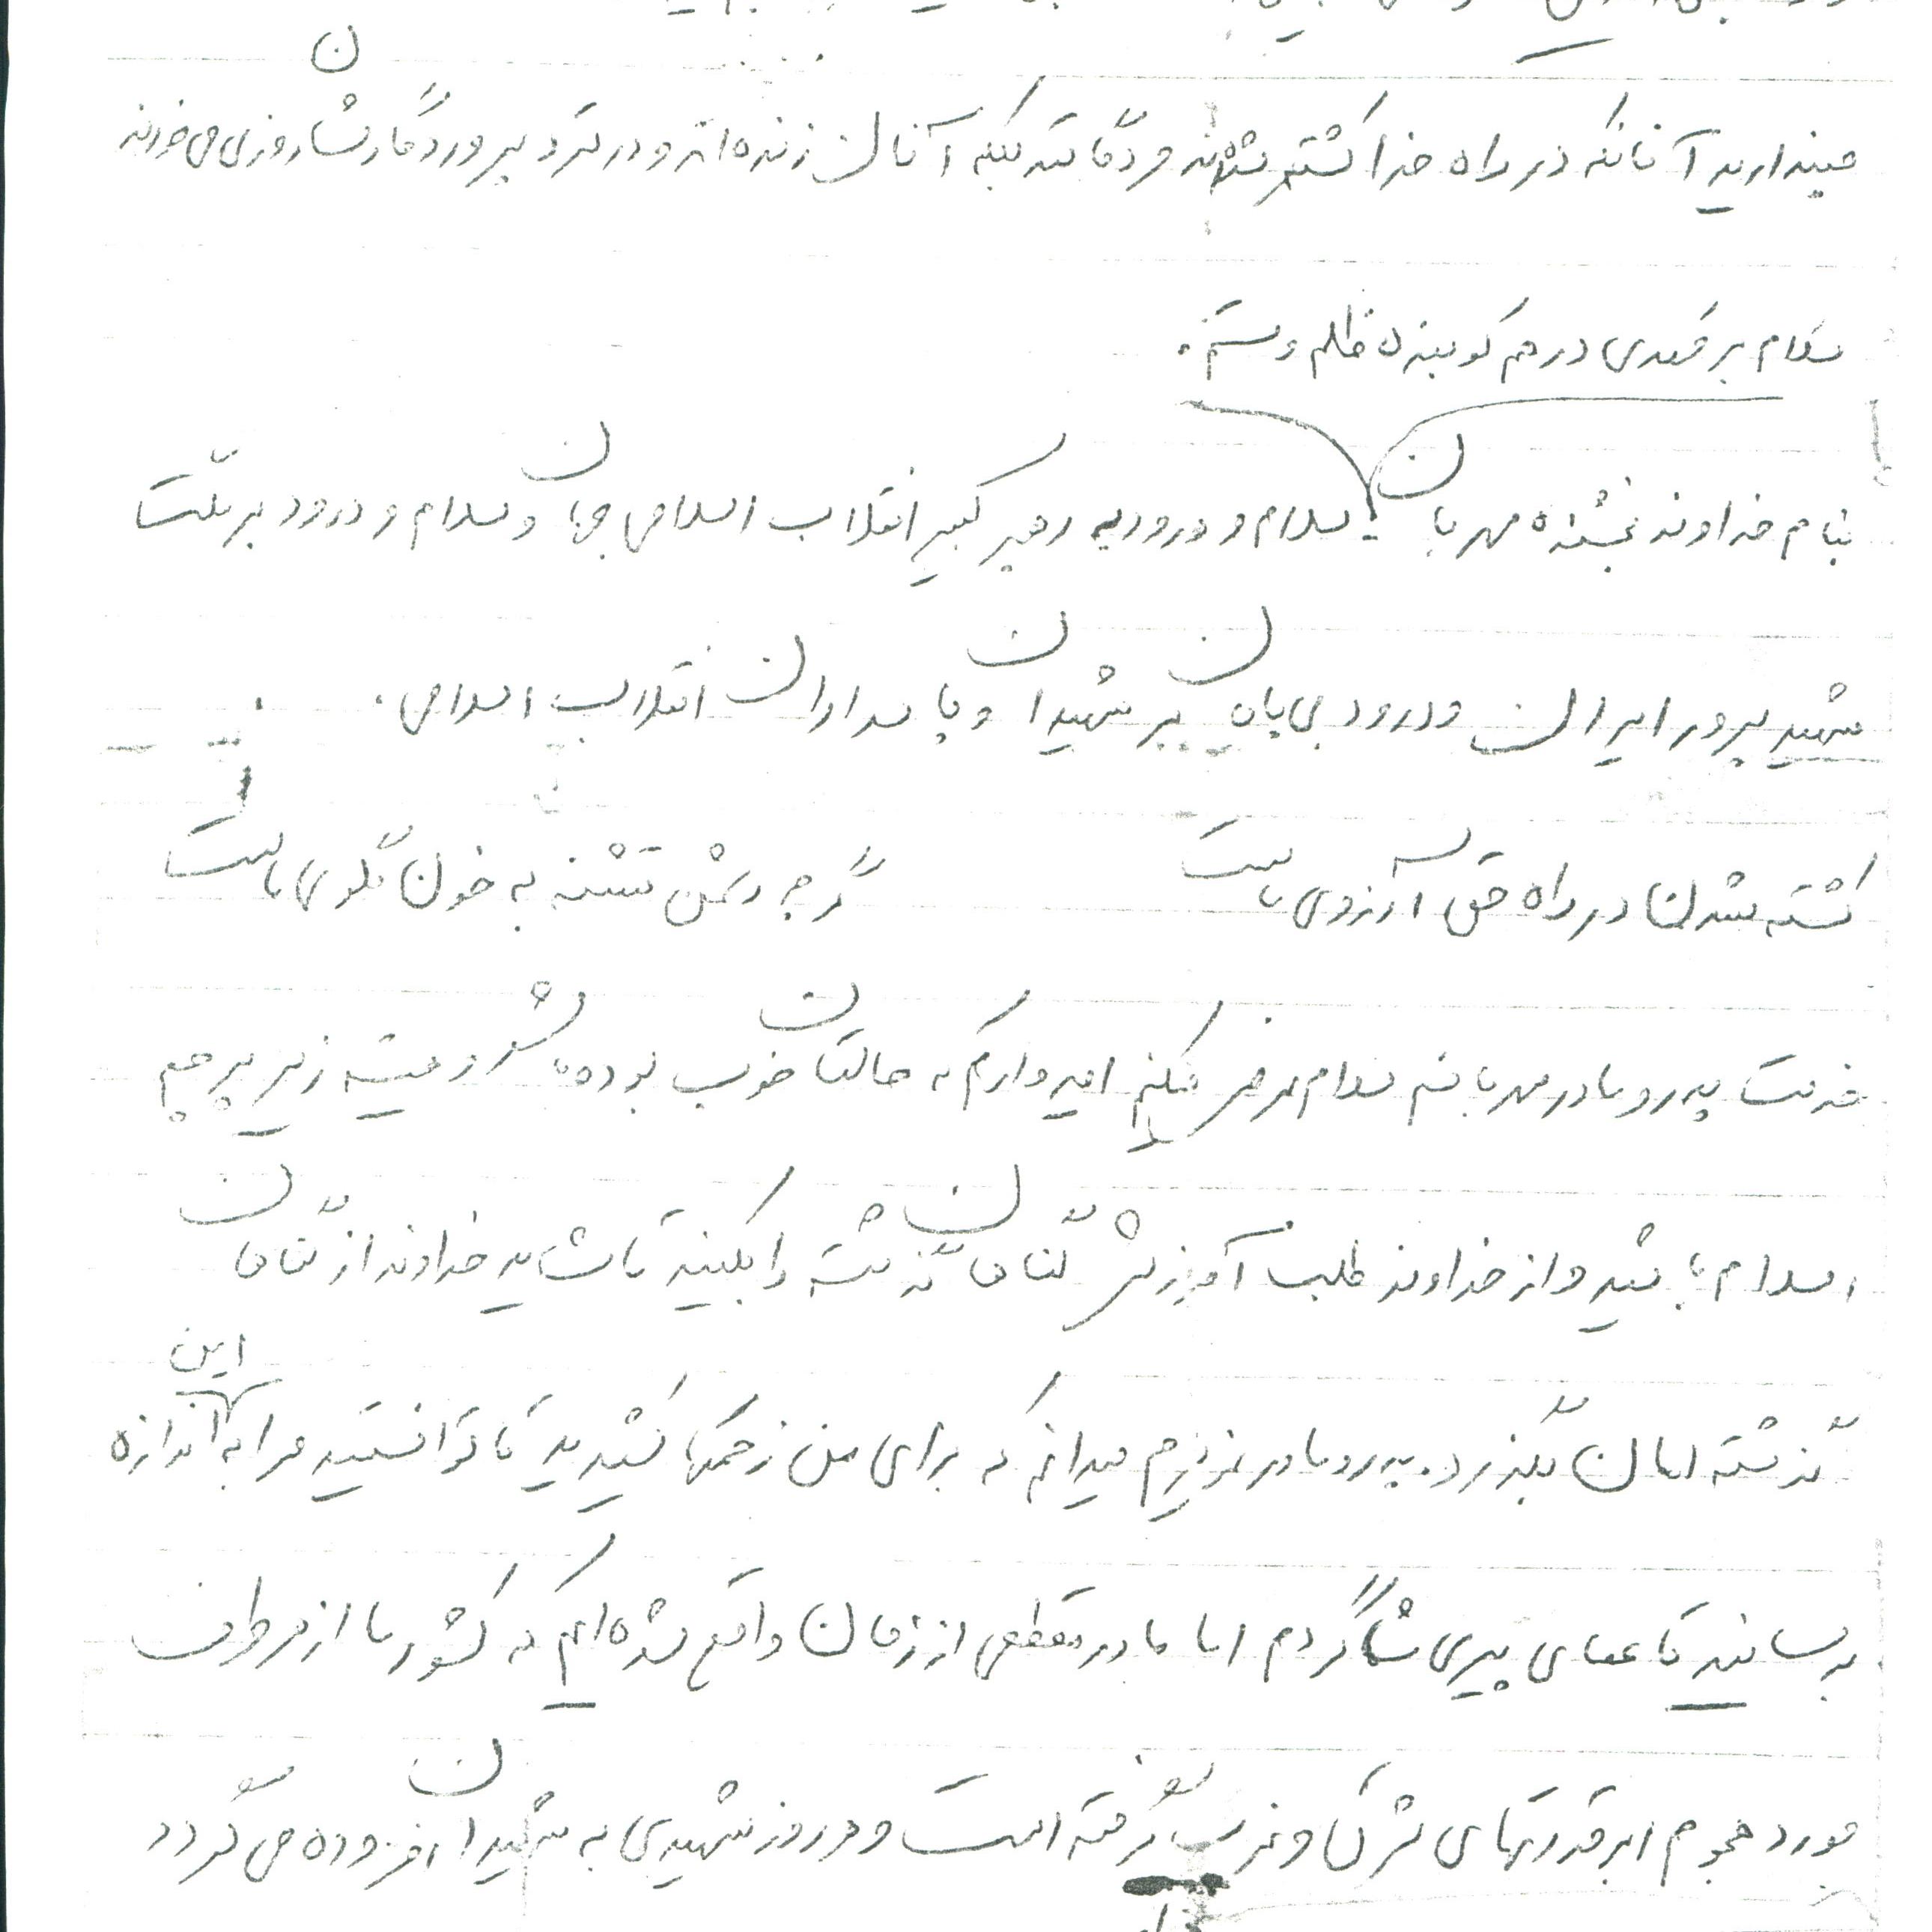 مپندارید آنانکه در راه خدا کشته شده‌اند مردگانند بلکه آنان زنده‌اند و در نزد پروردگارشان روزی می‌خورند
سلام بر مهدی درهم کوبنده ظلم و ستم.
بنام خداوند بخشنده مهربان سلام و درود به رهبر کبیر انقلاب اسلامی جهان و سلام و درود بر ملت
شهید پرور ایران و درود بی پایان بر شهیدان و پاسداران انقلاب اسلامی.
کشته شدن در راه حق آرزوی ماست گرچه دشمن تشنه به خون گلوی ماست
خدمت پدر و مادر مهربانم سلام عرض میکنم امیدوارم که حالتان خوب بوده باشد و همیشه زیر پرچم
اسلام باشید و از خداوند طلب آمرزش گناهان گذشته را بکنید تا شاید خداوند از گناهان
گذشته امان بگذرد. پدر و مادر عزیزم میدانم که برای من زحمتها کشیدید تا توانستید مرا به این اندازه
برسانید تا عصای پیری شما گردم اما ما در مقطعی از زمان واقع شده‌ایم که کشور ما از هر طرف
مورد هجوم ابرقدرتهای شرق و غرب قرار گرفته است و هر روز شهیدی به شهیدان افزوده می گردد